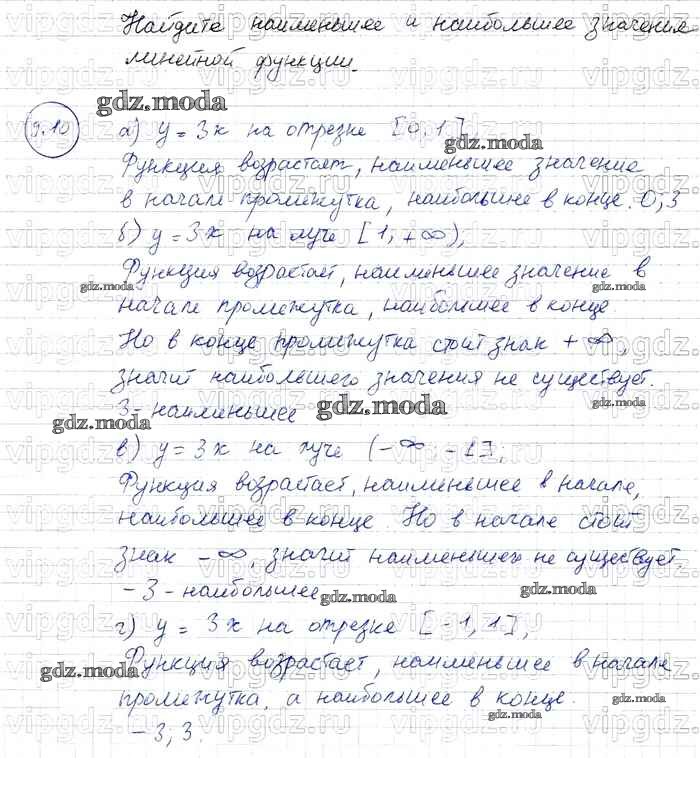 Найдите наименьшее и наибольшее значение
линейной функции.
gdz.moda
9.10
а) y = 3x на отрезке [0, 1],
gdz.moda
Функция возрастает, наименьшее значение
в начале промежутка, наибольшее в конце. 0; 3
б) y = 3x на луче [1, +∞),
Функция возрастает, наименьшее значение в
gdz.moda
gdz.moda
начале промежутка, наибольшее в конце
Но в конце промежутка стоит знак +∞,
gdz.moda
значит наибольшего значения не существует.
3 - наименьшее
gdz.moda
gdz.moda
gdz.moda
в) y = 3x на луче (-∞ -1];
Функция возрастает, наименьшее в начале,
наибольшее в конце. Но в начале стоит
знак -∞, значит наименьшего не существует.
-3 - наибольшее
gdz.moda
gdz.moda
г) y = 3x на отрезке [-1, 1],
Функция возрастает, наименьшее в начале
gdz.moda
промежутка, а наибольшее в конце.
gdz.moda
gdz.moda
-3; 3.
gdz.moda
vipgdz.ru